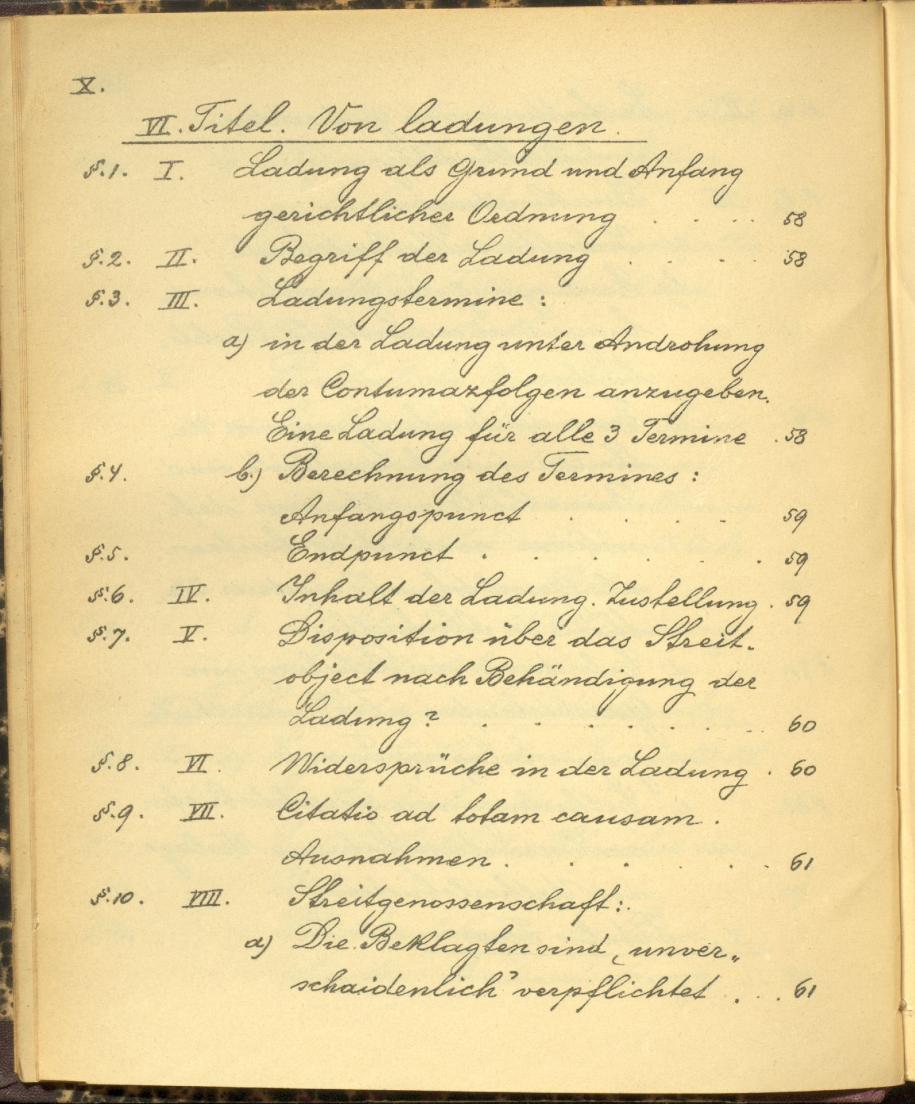 X.
VI. Titel. Von ladungen.
§.1. I. Ladung als Grund und Anfang
gerichtlicher Ordnung . . . . 58
§.2. II. Begriff der Ladung . . . . 58
§.3. III. Ladungstermine :
a) in der Ladung unter Androhung
der Contumazfolgen anzugeben.
Eine Ladung für alle 3 Termine . 58
§.4. b.) Berechnung des Termines :
Anfangspunct . . . . 59
§.5. Endpunct . . . . . . 59
§.6. IV. Inhalt der Ladung. Zustellung . 59
§.7. V. Disposition über das Streit-
object nach Behändigung der
Ladung ? . . . . . . . . 60
§.8. VI. Widersprüche in der Ladung . 60
§.9. VII. Citatio ad totam causam .
Ausnahmen . . . . . . 61
§.10. VIII. Streitgenossenschaft :
a) Die Beklagten sind „unver„
schaidenlich" verpflichtet . . . 61